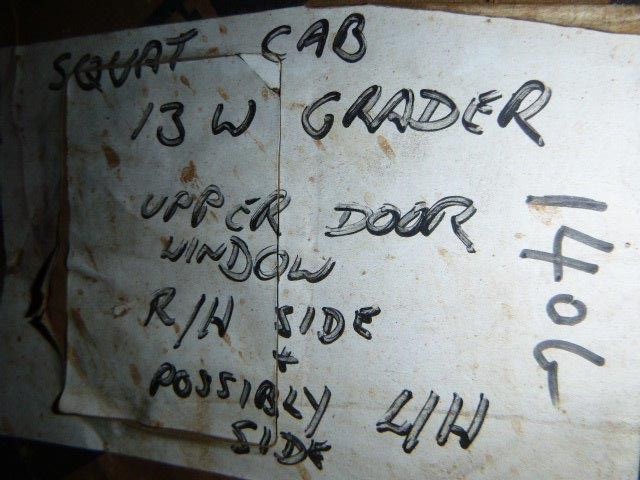 SQUAT CAB
13W GRADER
UPPER DOOR
WINDOW
R/H SIDE
+
POSSIBLY L/H
SIDE
140G